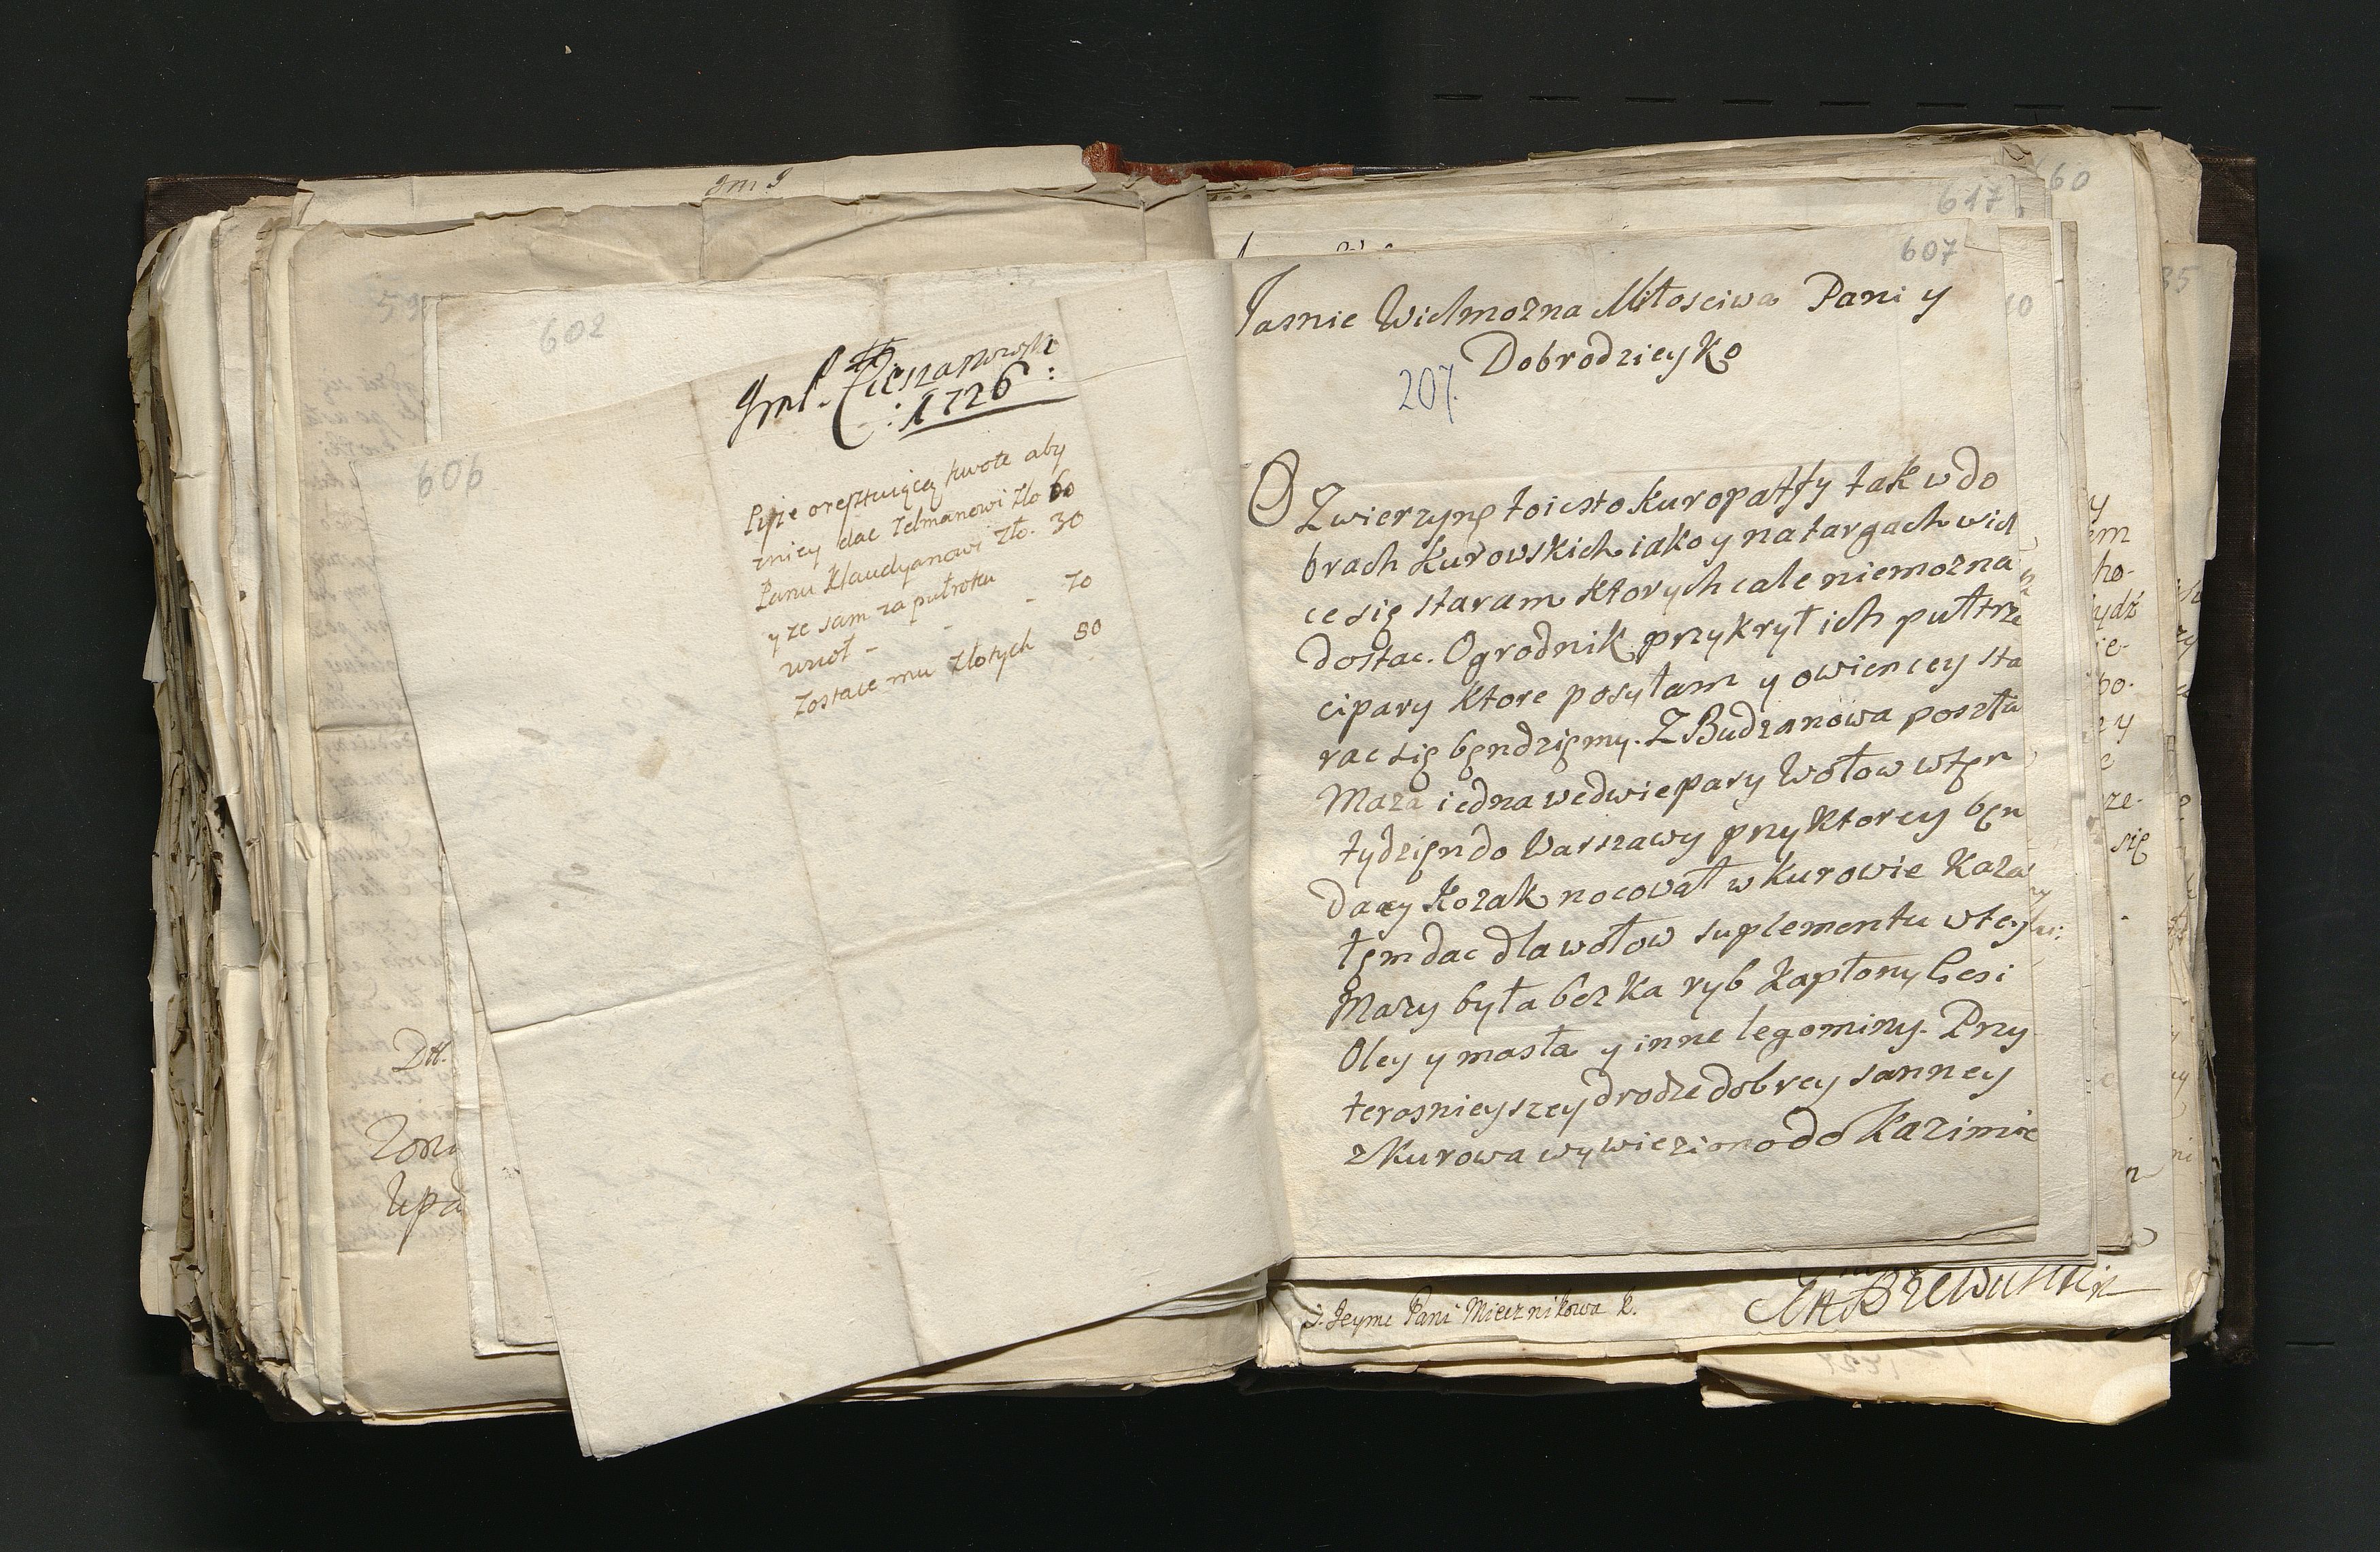 602
606
ImP. Cieszanowski
: 1726 :
Pisze oresztuiącą kwote aby
zniey dac Telmanowi zło 60
Panu Klaudyanowi Zło. 30
y ze sam za pułroku
wzioł - - - 70
Zostaie mu złotych 80
607
617
60
Jasnie Wielmozna Miłosciwa Pani y
Dobrodzieyko
207.
O Zwierzynę toiesto kuropattfy tak wdo
brach kurowskich iako y na targach wiel
ce się staram ktorych cale niemozna
dostac. Ogrodnik przykrył ich pułtrze
cipary ktore posyłam y owiencey sta
rac się bęndzięmy. Z Budzanowa poszła
Maza iedna wedwie pary Wołow wtęn
tydzięn do Warszawy przy ktorey bęn
dący Kozak nocował w Kurowie Kaza
łęm dac dla wołow suplementu w tey
Mazy była beczka ryb kapłony Gesi
Oley y masła y inne legominy. Przy
terasnieyszey drodze dobrey sanney
z Kurowa wywieziono do Kazimie
J. Jeymc Pani Miecznikowa K.